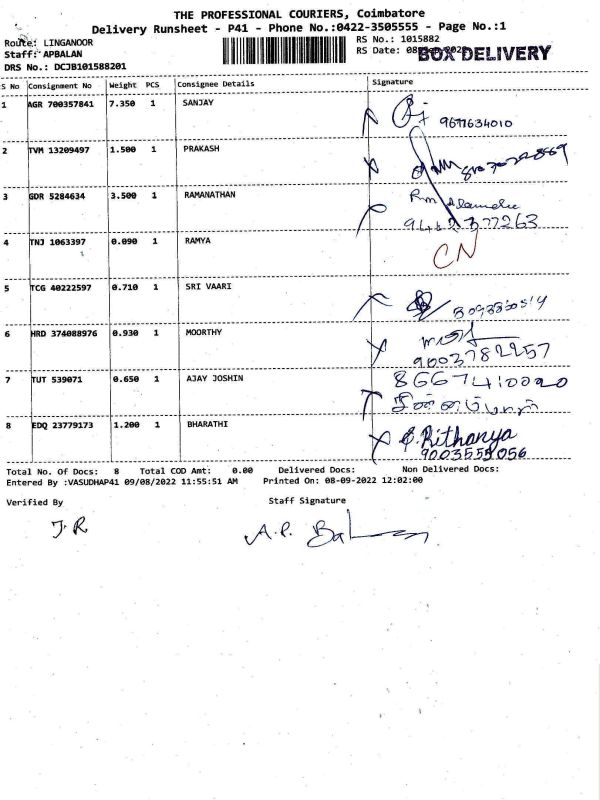 THE PROFESSIONAL COURIERS, Coimbatore
Delivery Runsheet - P41 - Phone No.:0422-3505555 - Page No.:1
Route: LINGANOOR
RS No.: 1015882
Staff: APBALAN
RS Date: 08-Sep-2022
BOX DELIVERY
DRS No.: DCJB101588201
S No Consignment No Weight PCS Consignee Details Signature
1 AGR 700357841 7.350 1 SANJAY
9677634010
2 TVM 13209497 1.500 1 PRAKASH
3 GDR 5284634 3.500 1 RAMANATHAN
4 TNJ 1063397 0.090 1 RAMYA CN
5 TCG 40222597 0.710 1 SRI VAARI
6 HRD 374088976 0.930 1 MOORTHY
9003782257
7 TUT 539071 0.650 1 AJAY JOSHIN
8667410020
8 EDQ 23779173 1.200 1 BHARATHI Rithanya
9003555056
Total No. Of Docs: 8 Total COD Amt: 0.00 Delivered Docs: Non Delivered Docs:
Entered By :VASUDHAP41 09/08/2022 11:55:51 AM Printed On: 08-09-2022 12:02:00
Verified By Staff Signature
J.R A.P. Bal